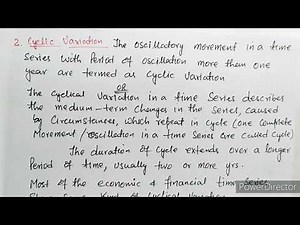 2. Cyclic Variation The Oscillatory movement in a time
Series with Period of oscillation more then one
year are termed as Cyclic Variation
OR
The Cyclical Variation in a time Series describes
the medium-term changes in the Series, caused
by Circumstances, which repeat in cycle (one Complete
Movement / oscillation in a time Series are called Cycle)
The duration of Cycle extends over a longer
Period of time, usually two or more yrs.
Most of the economic & financial time Series
Kind of Cyclical Variation
PowerDirector